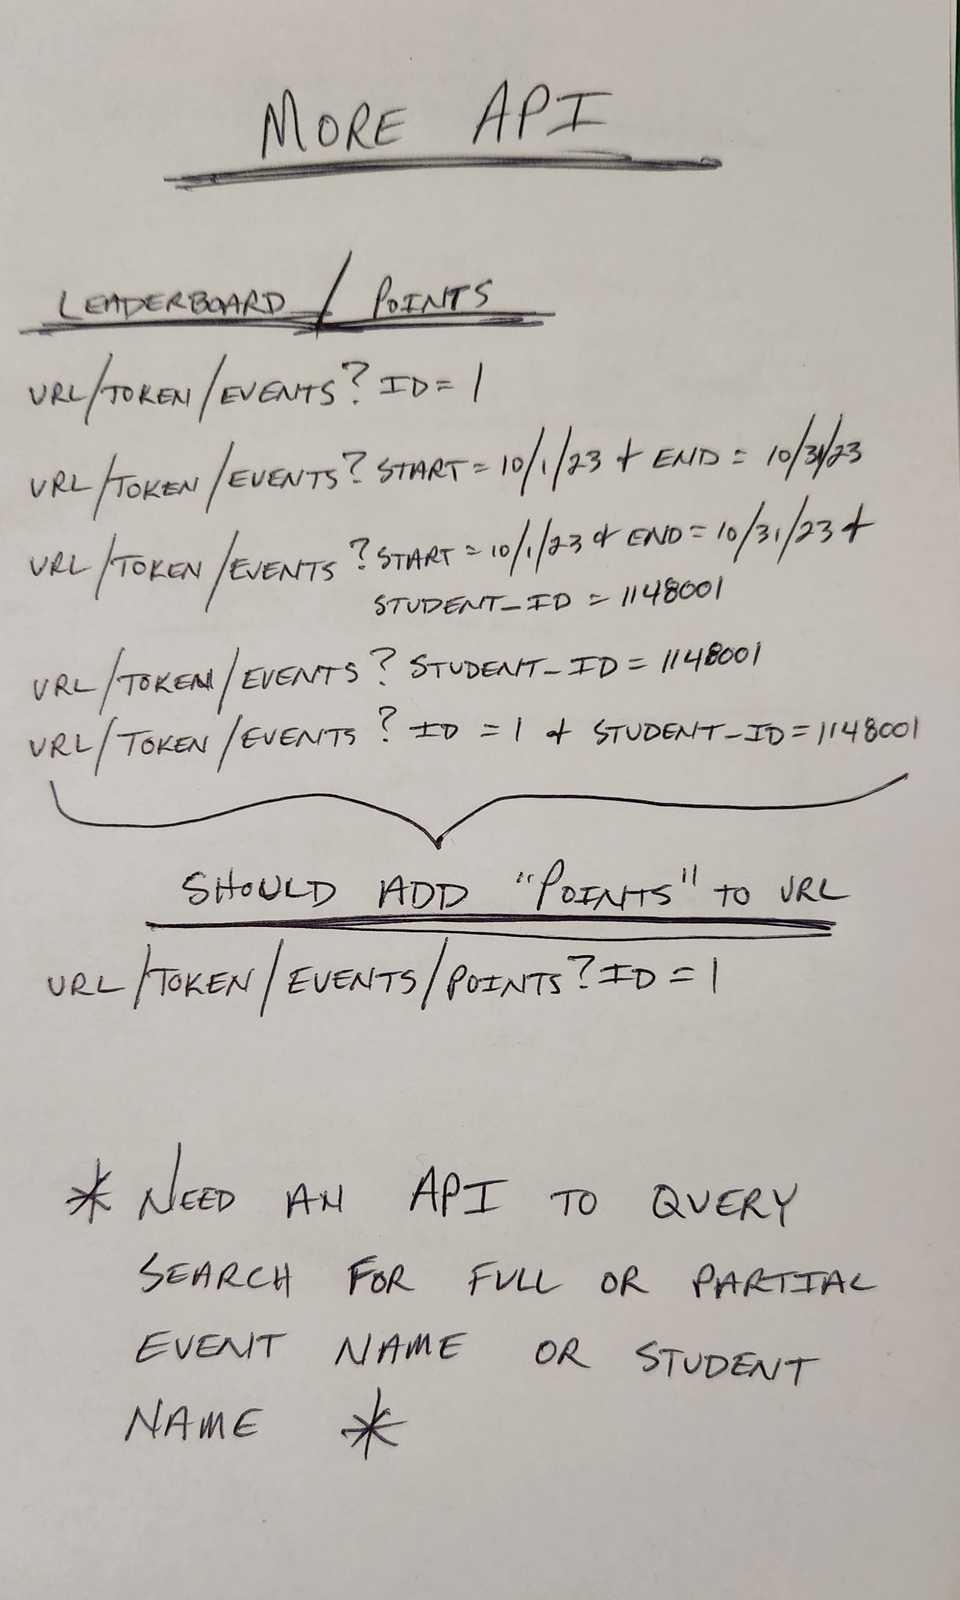 MORE API
LEADERBOARD / POINTS
URL/TOKEN/EVENTS? ID = 1
URL/TOKEN/EVENTS? START = 10/1/23 + END = 10/31/23
URL/TOKEN/EVENTS? START = 10/1/23 + END = 10/31/23 +
STUDENT_ID = 1148001
URL/TOKEN/EVENTS? STUDENT_ID = 1148001
URL/TOKEN/EVENTS? ID = 1 + STUDENT_ID = 1148001
SHOULD ADD "POINTS" TO URL
URL/TOKEN/EVENTS/POINTS? ID = 1
* NEED AN API TO QUERY
SEARCH FOR FULL OR PARTIAL
EVENT NAME OR STUDENT
NAME *